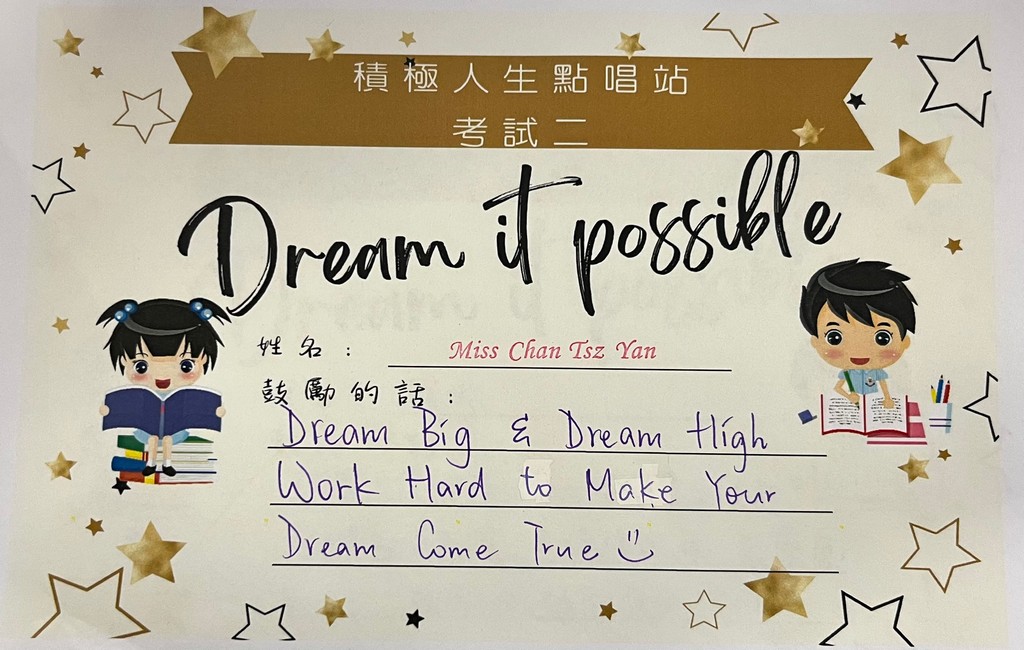 積極人生點唱站
考試二
Dream it possible
姓名： Miss Chan Tsz Yan
鼓勵的話：
Dream Big & Dream High
Work Hard to Make Your
Dream Come True